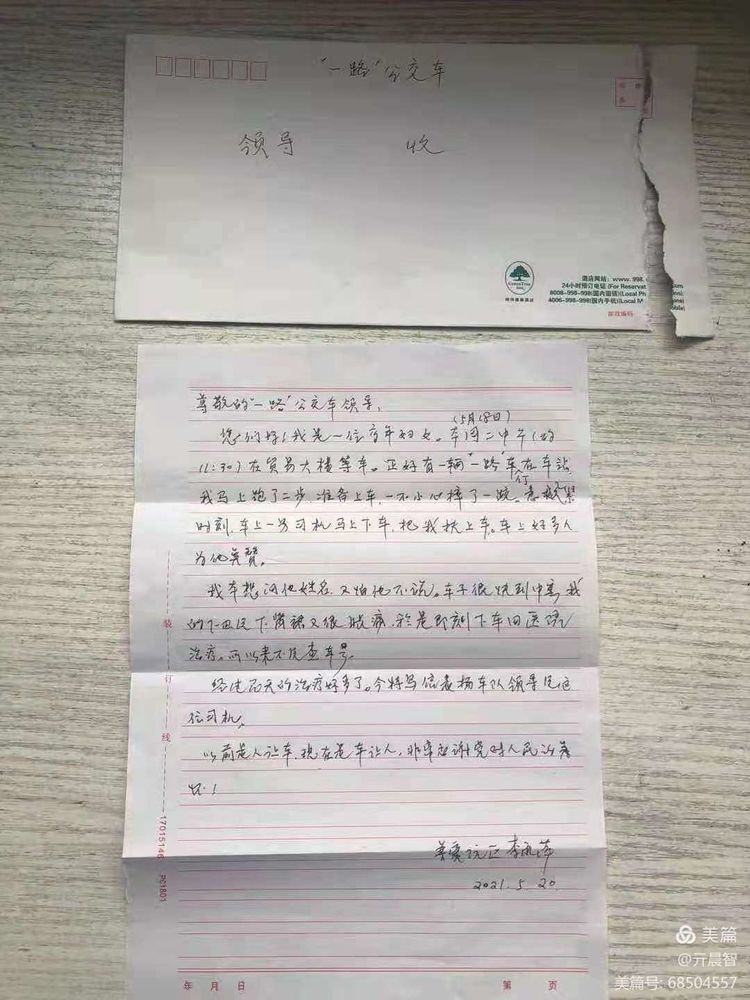 "一路"公交车
领导 收
GreenTree Inn
格林豪泰酒店
酒店网站: www.998.com
24小时预订电话 (For Reservat
8008-998-998(国内固话)(Local Ph
4006-998-998(国内手机)(Local M
邮政编码
尊敬的"一路"公交车领导:
(5月18日)
您们好!我是一位老年妇女。本周二中午(约
11:30)在贸易大楼等车。正好有一辆"一路"车在车站
我马上跑了二步,准备上车,一不小心摔了一跤。
时刻,车上一男司机马上下车,把我扶上车。车上好多人
为他点赞。
我本想问他姓名,又怕他不说。车子很快到中害,我
的下巴及下胃裙又很脱疼,于是即刻下车回医院
治疗,所以来不及查车号。
经过天的治疗好多了。今特写信表扬车队领导
位司机。
以前是人让车,现在是车让人,非常感谢党对人民的关
怀!
2021.5.20.
装
订
线
17015146 PC1801
年 月 日
第 页
美篇
@亓晨智
美篇号: 68504557